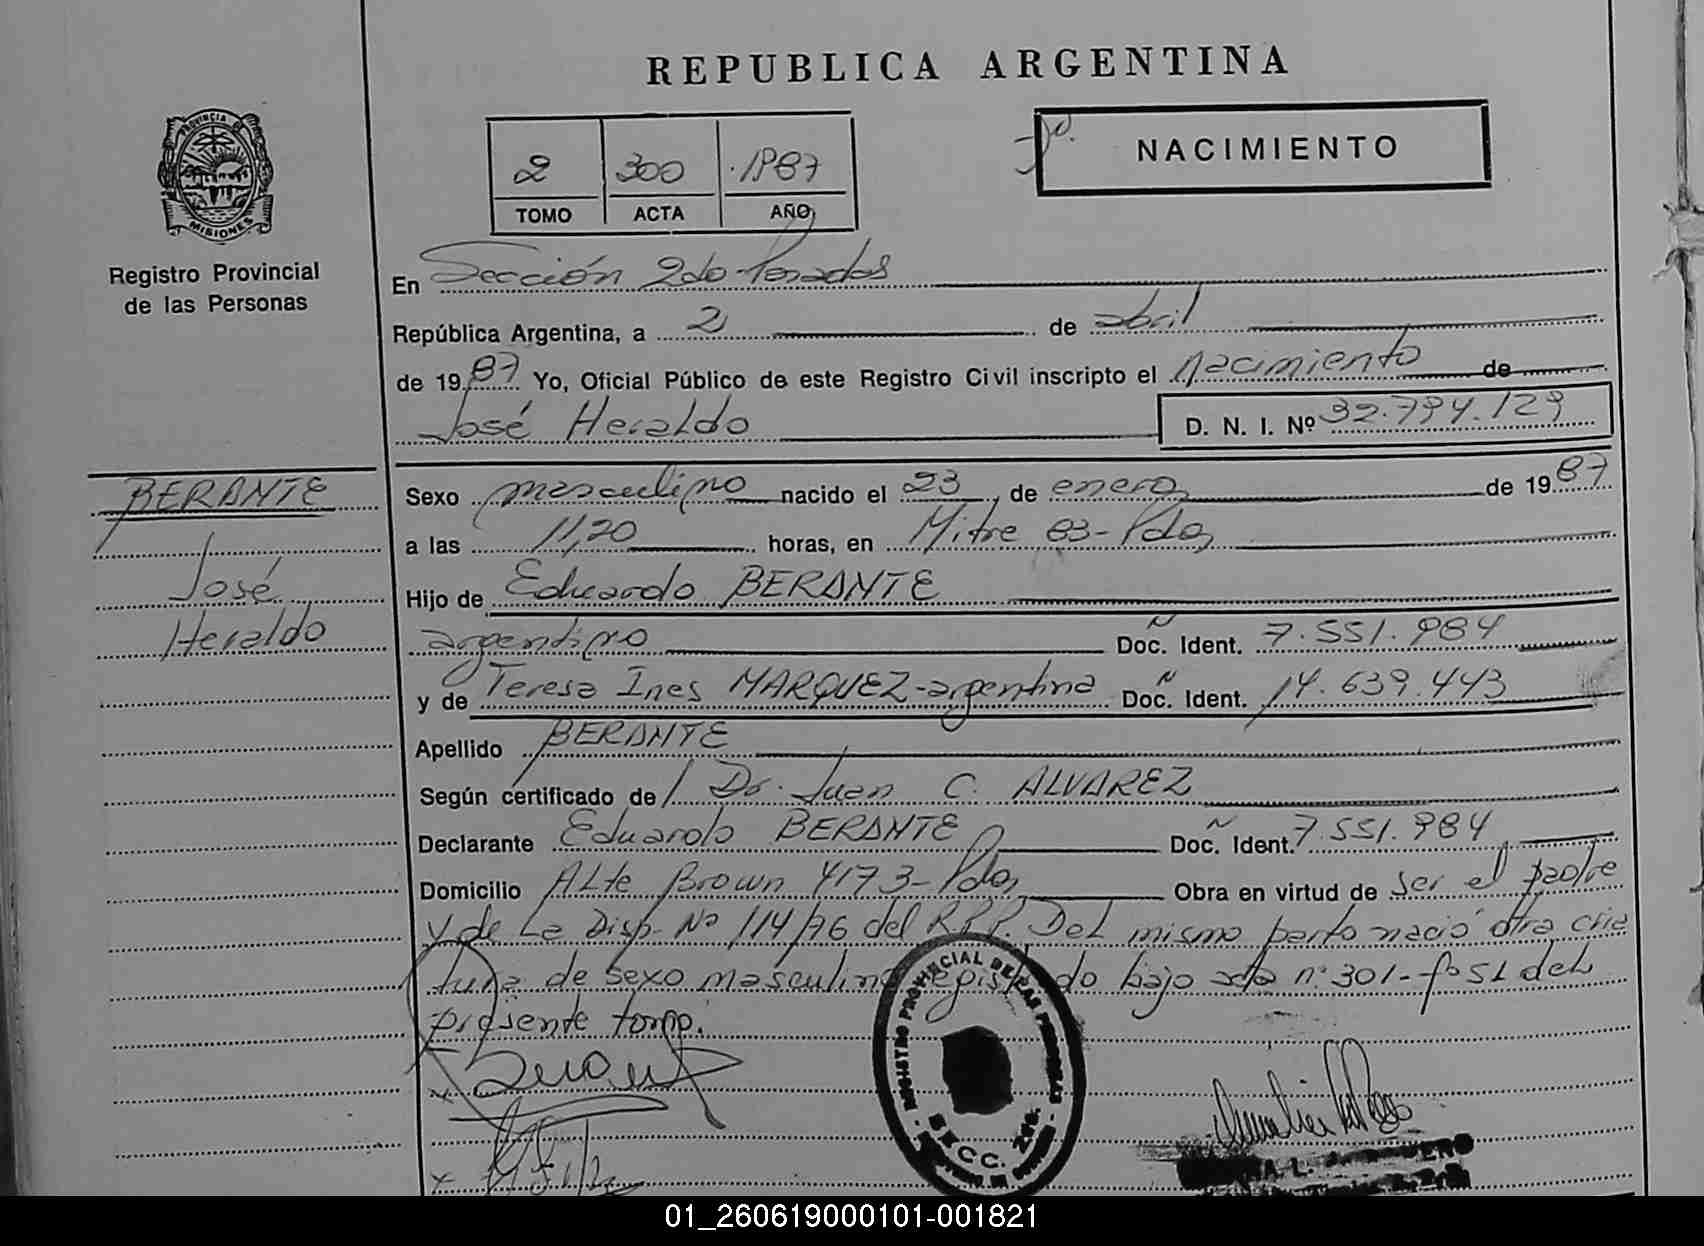 REPUBLICA ARGENTINA
PROVINCIA DE
MISIONES
Registro Provincial
de las Personas
2 300 1987
TOMO ACTA AÑO
NACIMIENTO
En Sección 2da Posadas
República Argentina, a 2 de abril
de 1987 Yo, Oficial Público de este Registro Civil inscripto el Nacimiento de
José Heraldo D. N. I. Nº 32.794.129
BERANTE
José
Heraldo
Sexo masculino nacido el 23 de enero de 1987
a las 11,20 horas, en Mitre 83-Pdas
Hijo de Eduardo BERANTE
argentino Doc. Ident. 7.551.984
y de Teresa Ines MARQUEZ-argentina Doc. Ident. 14.639.443
Apellido BERANTE
Según certificado de Dr. Juan C. ALVAREZ
Declarante Eduardo BERANTE Doc. Ident. 7.551.984
Domicilio Alte Brown 4173-Pdas Obra en virtud de ser el padre
y de La Disp. Nº 114/76 del R.P.P. Del mismo parto nació otra cria
tura de sexo masculino registrado bajo acta nº 301-fº51 del
presente tomo.
REGISTRO PROVINCIAL DE LAS PERSONAS
SECC. 2da.
01_260619000101-001821